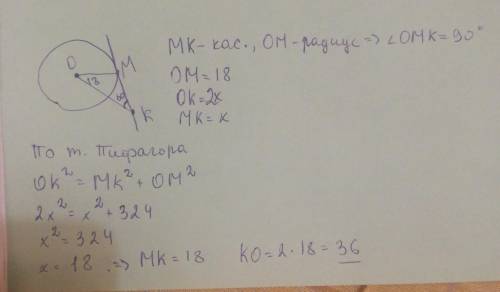 MK - кас., OM - радиус => ∠OMK = 90°
O
M
18
60
K
OM = 18
OK = 2x
MK = x
По т. Пифагора
OK² = MK² + OM²
2x² = x² + 324
x² = 324
x = 18 => MK = 18 KO = 2 · 18 = 36